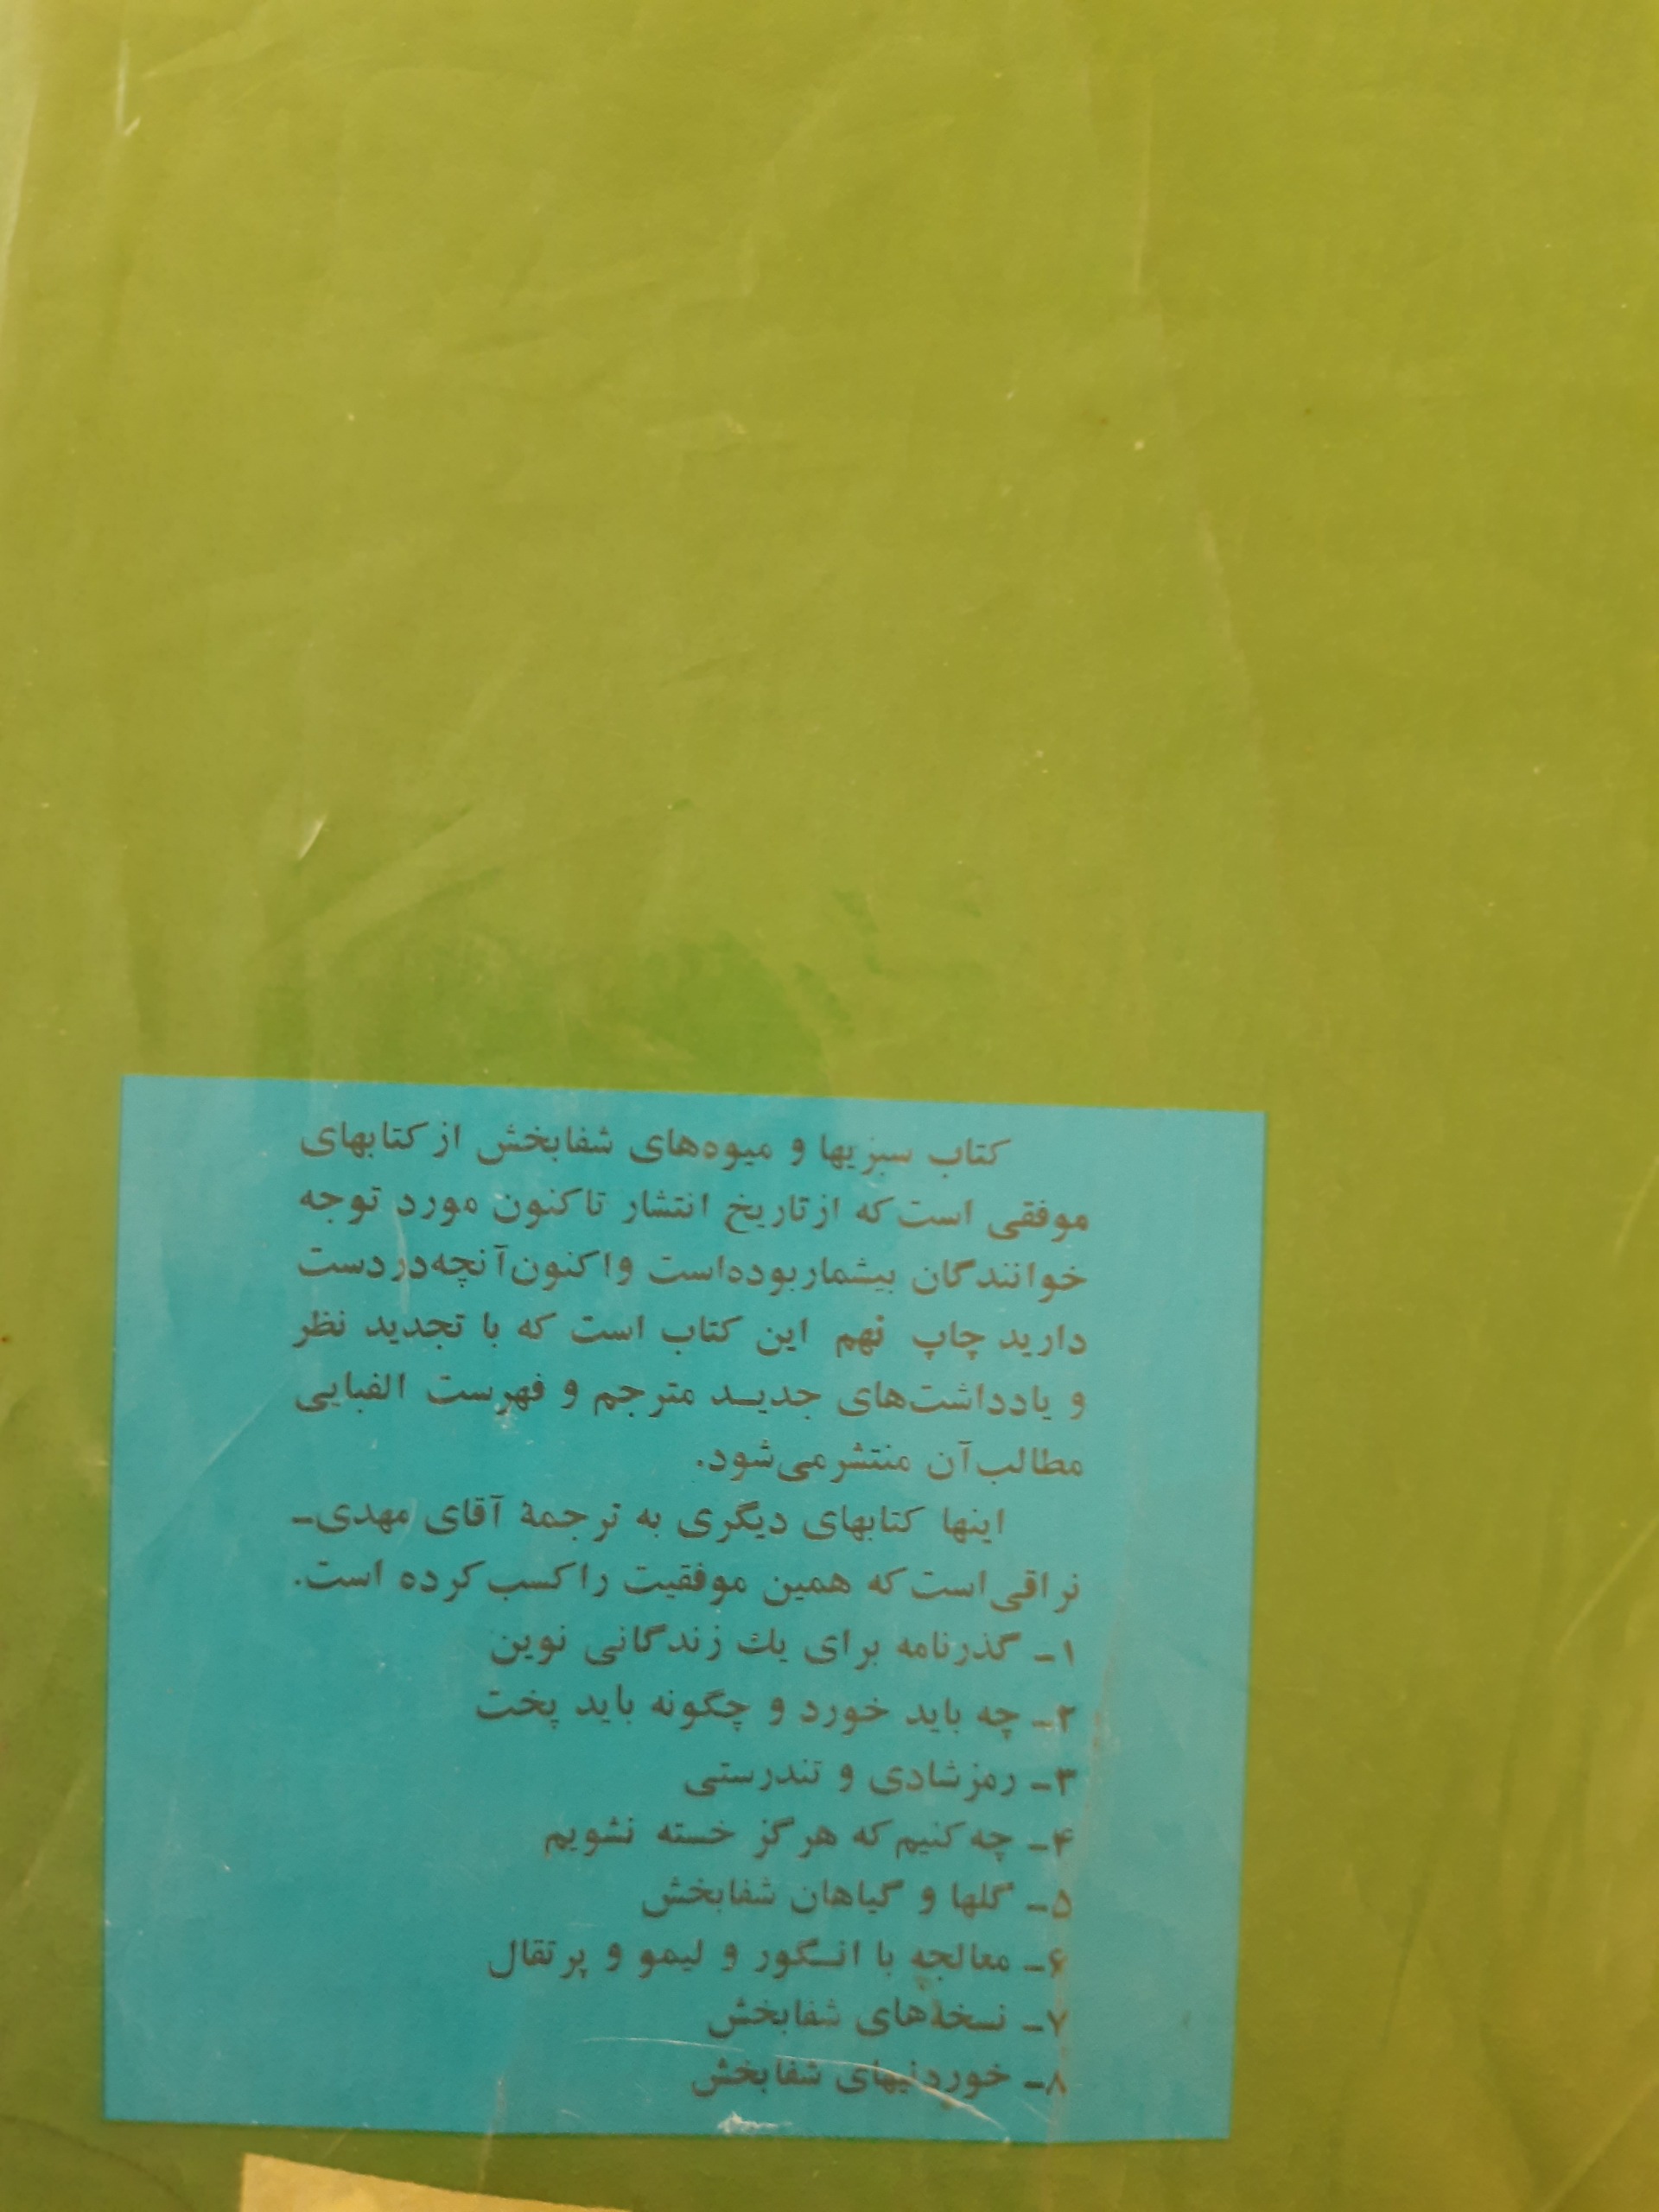 کتاب سبزیها و میوه‌های شفابخش از کتابهای
موفقی است که از تاریخ انتشار تاکنون مورد توجه
خوانندگان بیشمار بوده‌است و اکنون آنچه در دست
دارید چاپ نهم این کتاب است که با تجدید نظر
و یادداشت‌های جدید مترجم و فهرست الفبایی
مطالب آن منتشر می‌شود.
اینها کتابهای دیگری به ترجمهٔ آقای مهدی-
نراقی است که همین موفقیت را کسب کرده است.
۱- گذرنامه برای یك زندگانی نوین
۲- چه باید خورد و چگونه باید پخت
۳- رمز شادی و تندرستی
۴- چه کنیم که هرگز خسته نشویم
۵- گلها و گیاهان شفابخش
۶- معالجه با انگور و لیمو و پرتقال
۷- نسخه‌های شفابخش
۸- خوردنیهای شفابخش